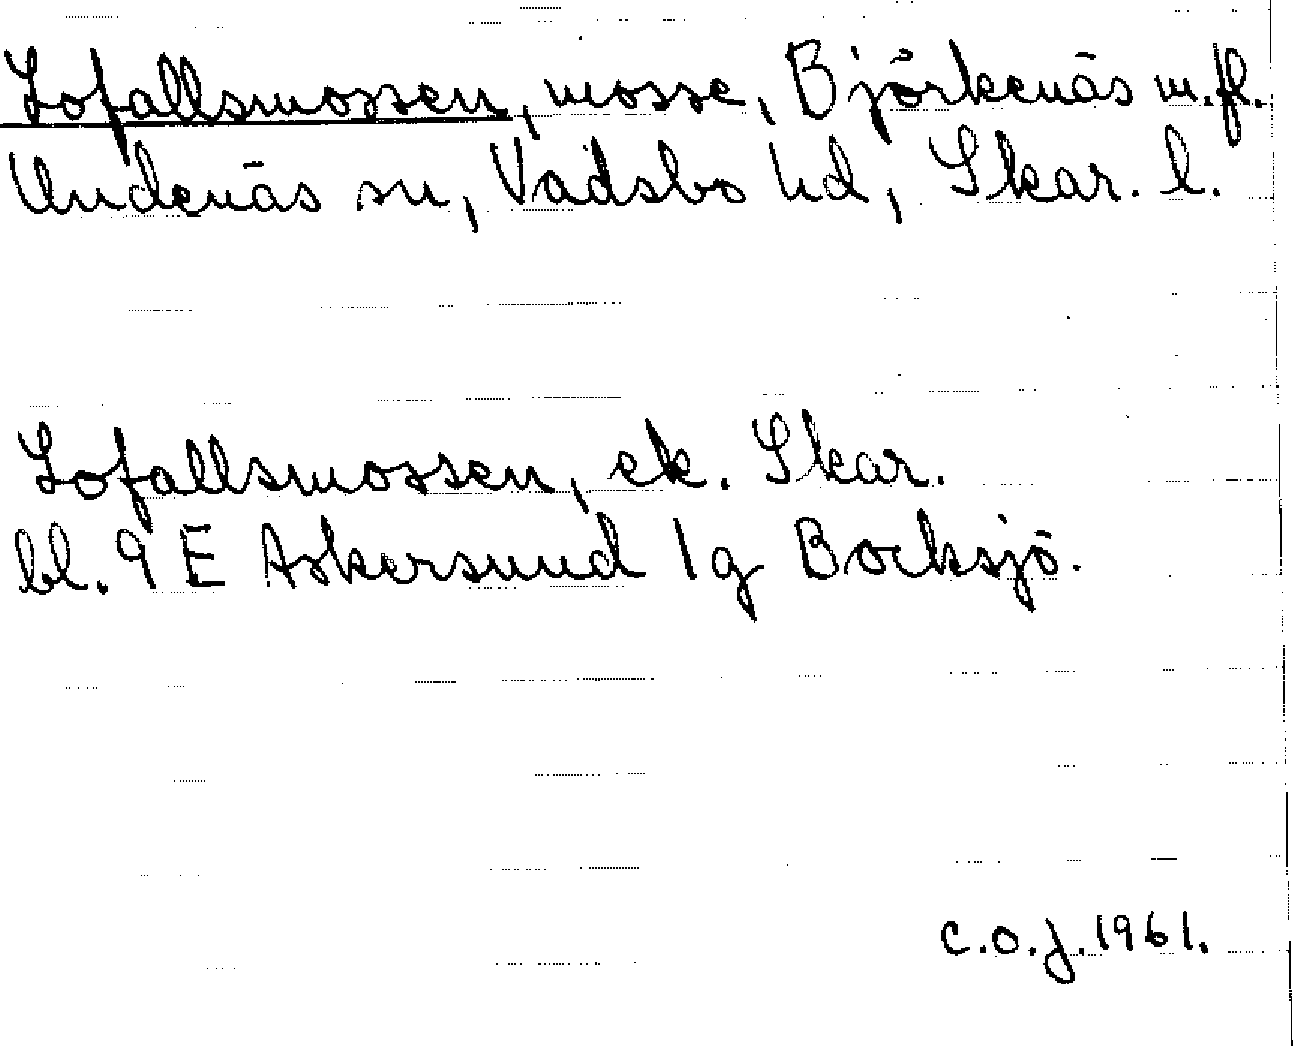 Lofallsmossen, mosse, Björkenäs m.fl.
Undenäs sn, Vadsbo hd, Skar. l.
Lofallsmossen, ek. Skar.
bl. 9 E Askersund 1g Bocksjö.
C.O.J. 1961.